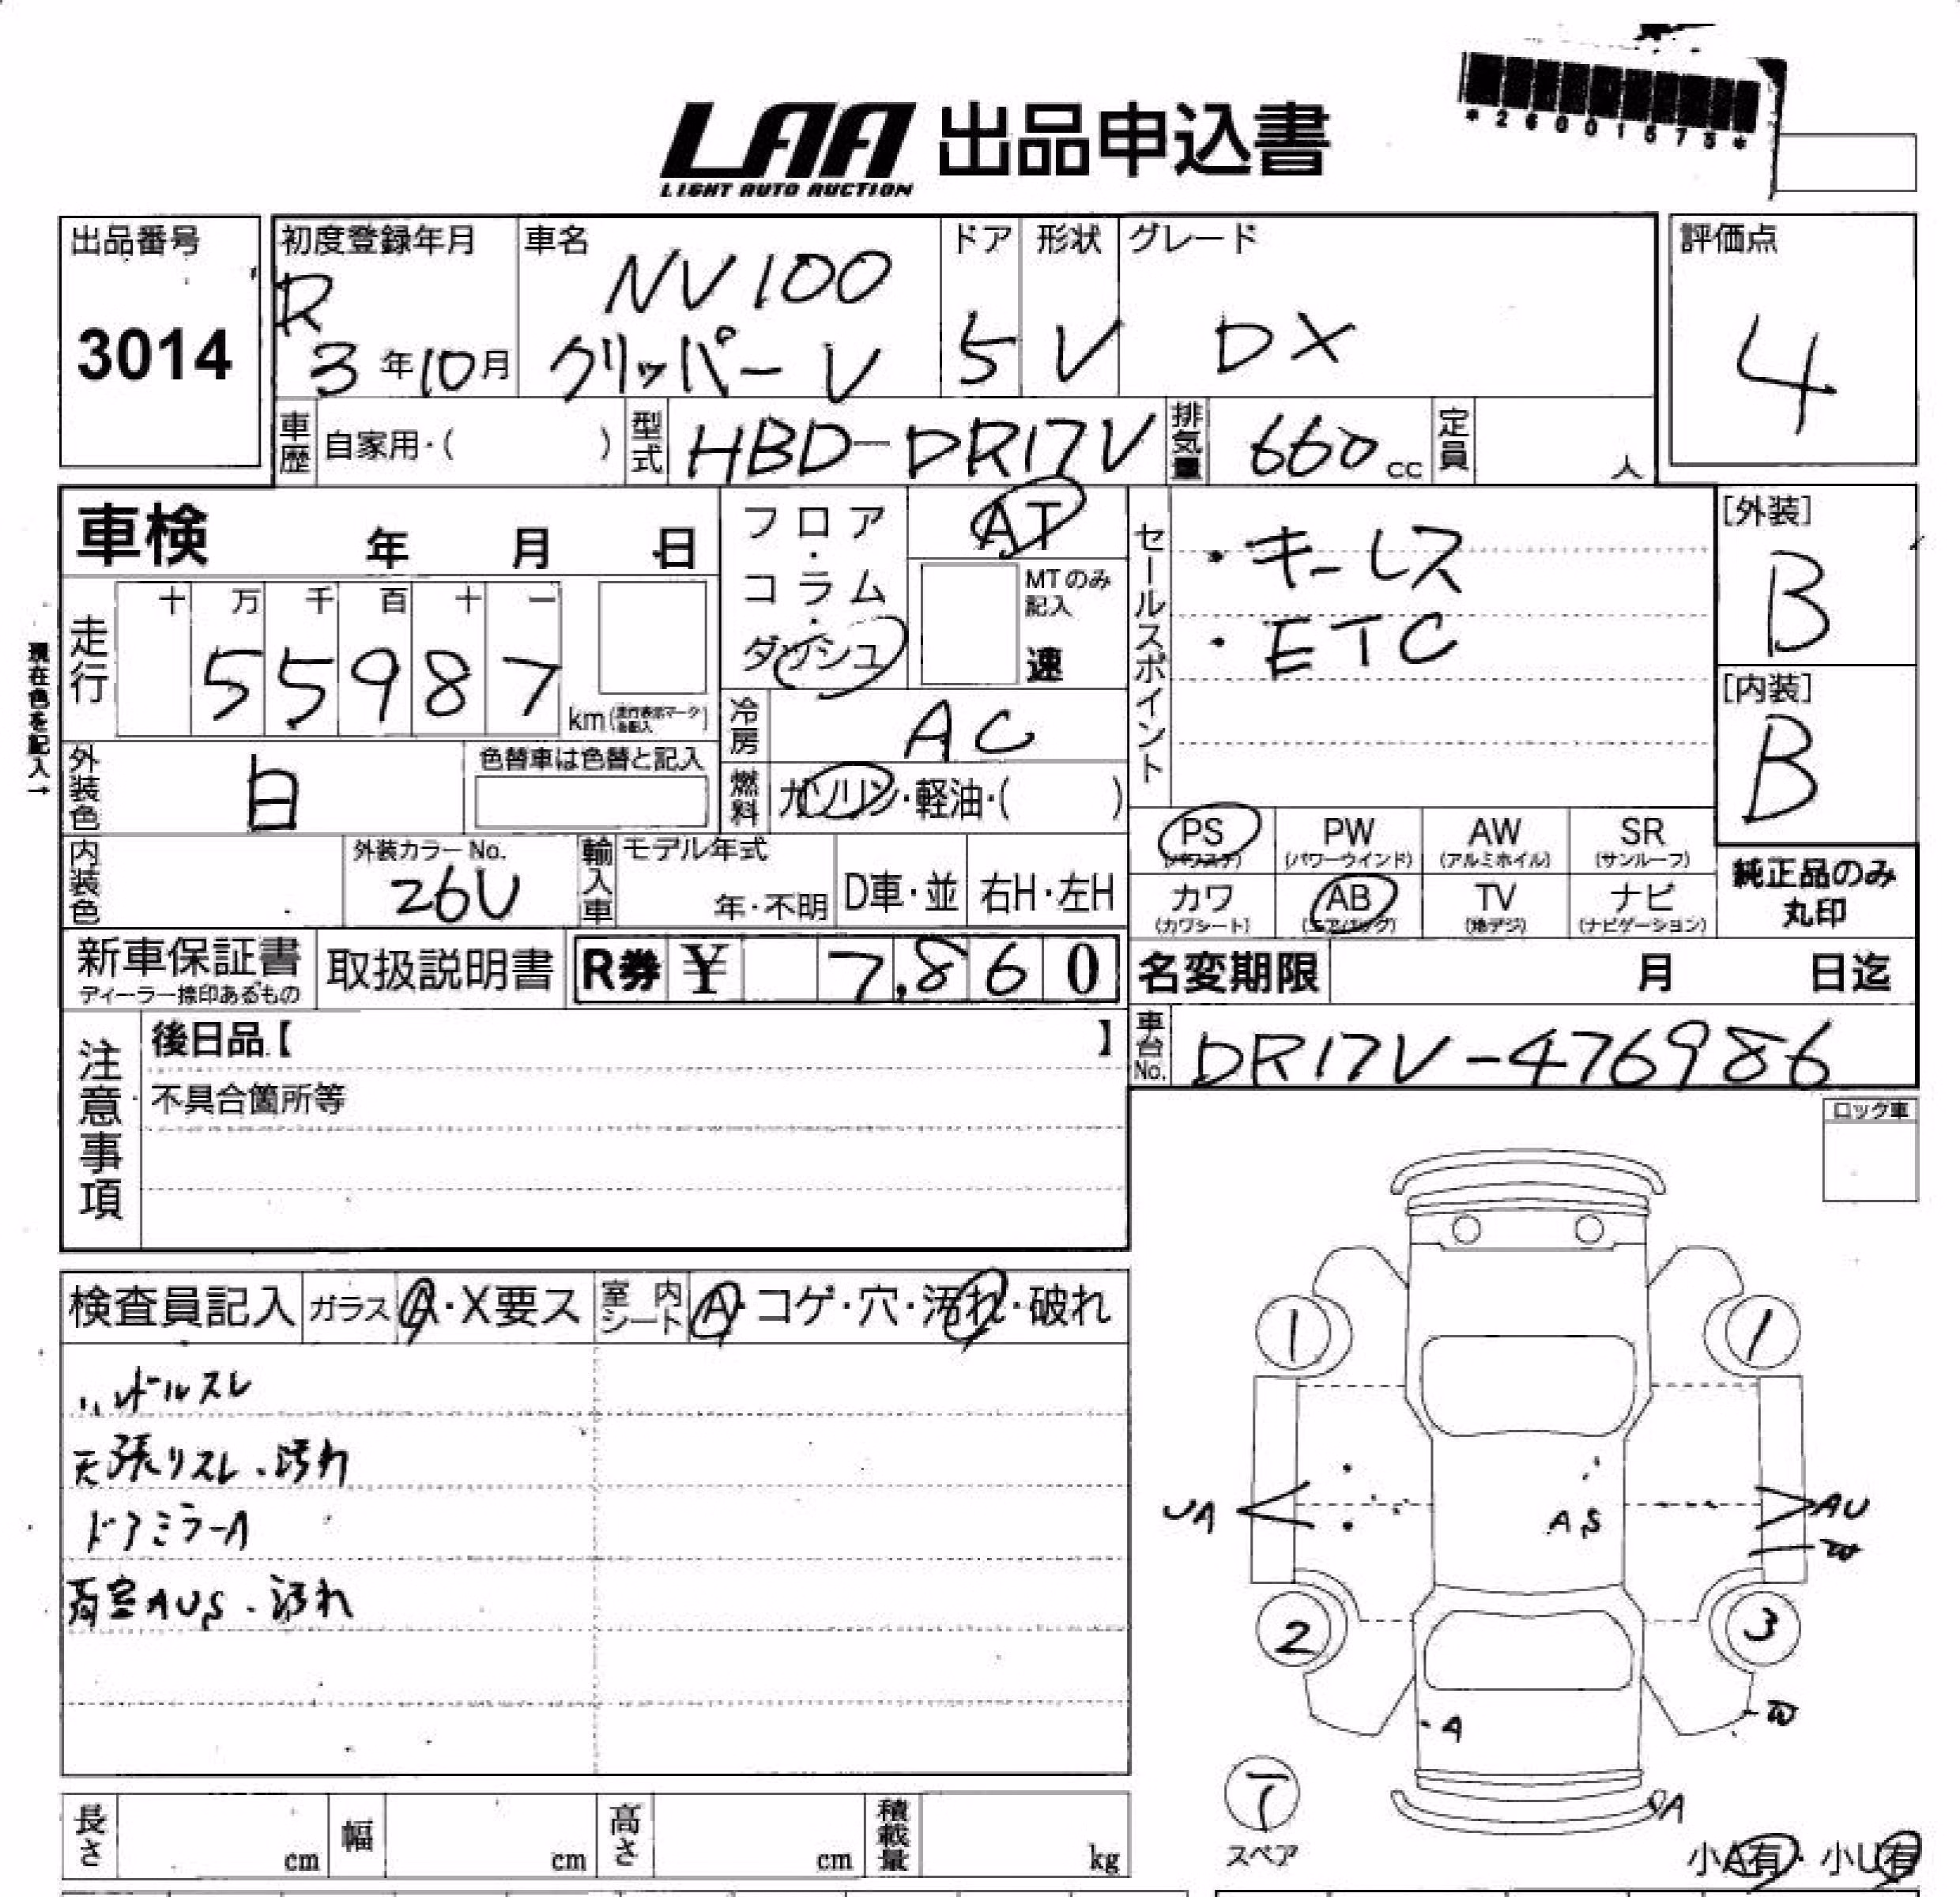 *26001575*
LAA 出品申込書
LIGHT AUTO AUCTION
出品番号
3014
初度登録年月
R
3年10月
車名
NV100
クリッパーV
ドア
5
形状
V
グレード
DX
評価点
4
車歴
自家用・( )
型式
HBD-DR17V
排気量
660cc
定員
人
車検 年 月 日
フロア・コラム・ダッシュ
AT
MTのみ記入
速
セールスポイント
・キーレス
・ETC
[外装]
B
[内装]
B
現在色を記入→
走行
十 万 千 百 十 一
55987
km(走行表示マークを記入)
冷房
AC
外装色
白
色替車は色替と記入
燃料
ガソリン・軽油・( )
PS
(パワステ)
PW
(パワーウインド)
AW
(アルミホイル)
SR
(サンルーフ)
カワ
(カワシート)
AB
(エアバッグ)
TV
(地デジ)
ナビ
(ナビゲーション)
純正品のみ
丸印
内装色
外装カラーNo.
26U
輸入車
モデル年式
年・不明
D車・並
右H・左H
新車保証書
ディーラー捺印あるもの
取扱説明書
R券 ¥ 7,860
名変期限 月 日迄
車台No.
DR17V-476986
注意事項
後日品【 】
不具合箇所等
ロック車
検査員記入
ガラス
A・X要ス
室内シート
A・コゲ・穴・汚れ・破れ
ハンドルスレ
天張リスレ、汚れ
ドアミラーA
荷室AUS、汚れ
1
1
UA
AS
AU
W
2
3
A
W
T
スペア
A
小A有・小U有
長さ
cm
幅
cm
高さ
cm
積載量
kg